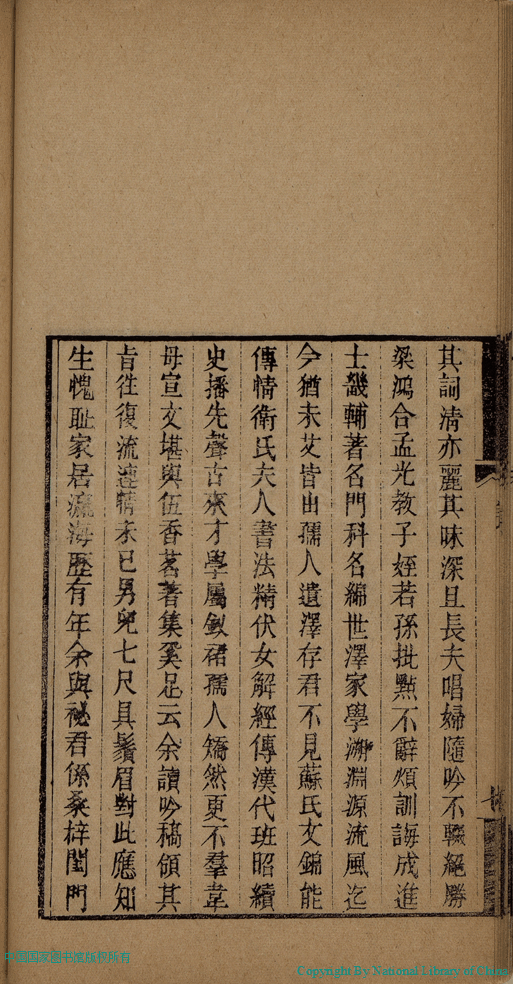 其詞清亦麗其味深且長夫唱婦隨吟不輟絕勝
梁鴻合孟光教子姪若孫批點不辭煩訓誨成進
士畿輔著名門科名綿世澤家學溯淵源流風迄
今猶未艾皆由孺人遺澤存君不見蘇氏文錦能
傳情衛氏夫人書法精伏女解經傳漢代班昭續
史播先聲古來才學屬釵裙孺人矯然更不羣韋
母宣文堪與伍香茗著集奚足云余讀吟稿領其
旨往復流連情未已男兒七尺具鬚眉對此應知
生愧耻家居瀛海歷有年余與祕君係桑梓閨門
中国国家图书馆版权所有
Copyright By National Library of China